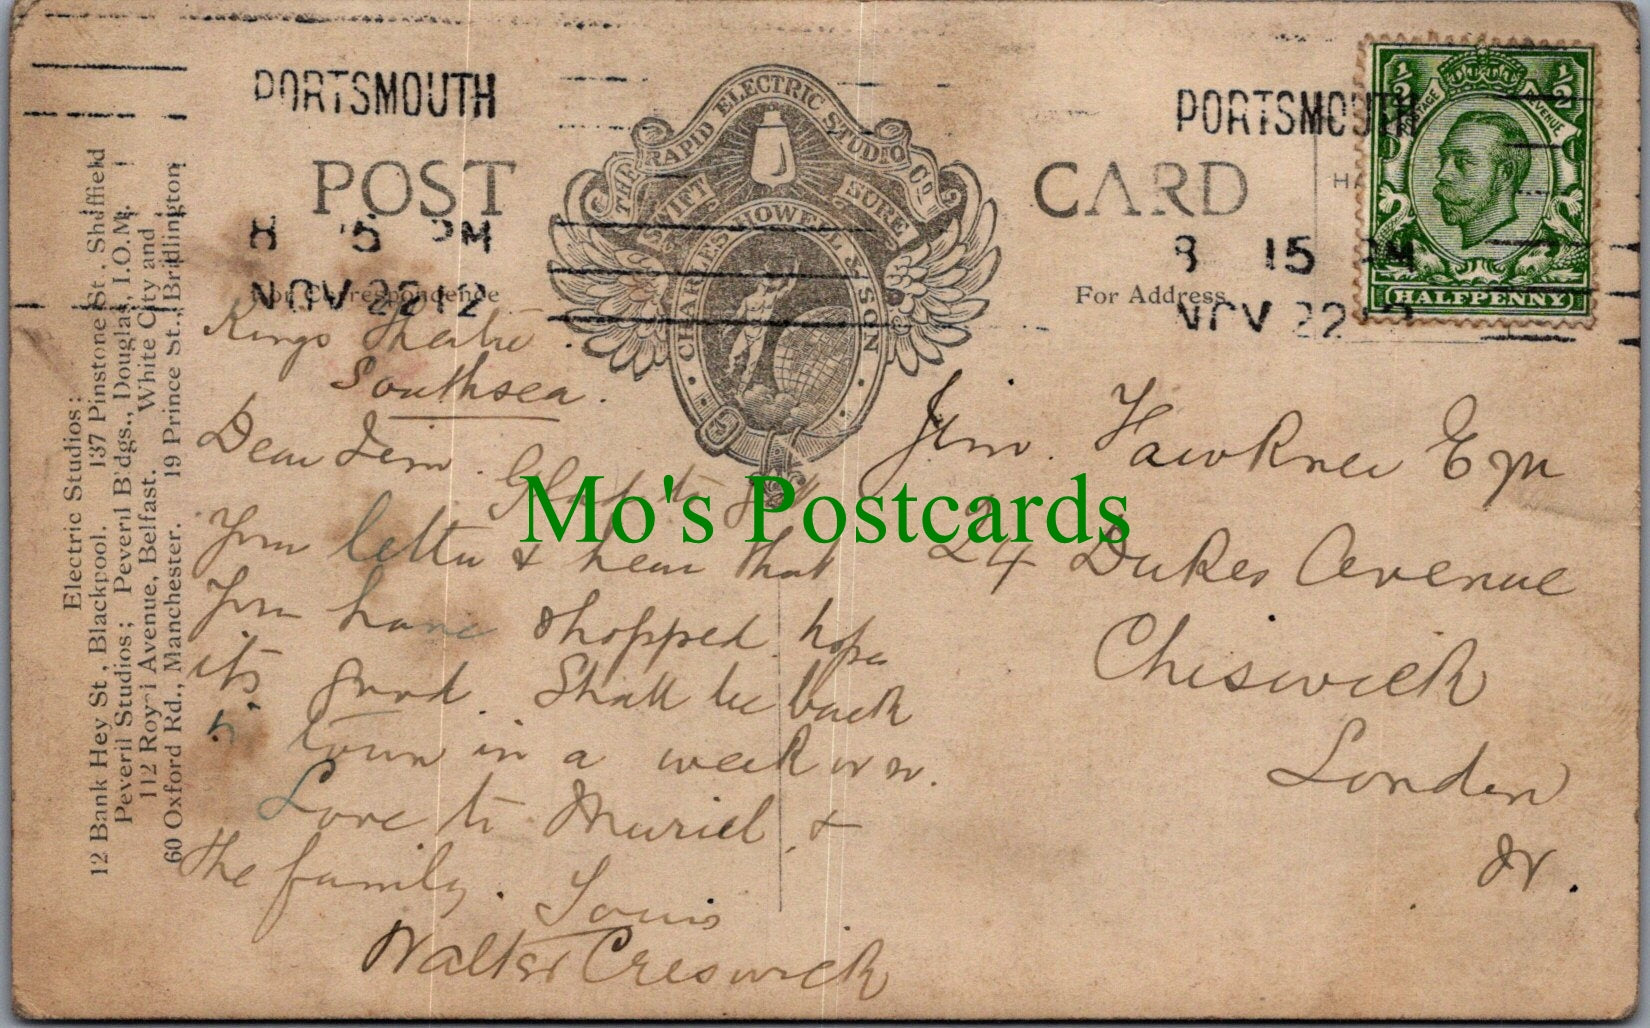 PORTSMOUTH
8 15 PM
NOV 22 12
PORTSMOUTH
8 15 PM
NOV 22 12
POST CARD
THE RAPID ELECTRIC STUDIO CO.
SWIFT SURE
CHARLES HOWELL & SON
½ ½
POSTAGE REVENUE
HALFPENNY
For Correspondence
For Address
Electric Studios:
12 Bank Hey St., Blackpool. 137 Pinstone St., Sheffield
Peveril Studios; Peveril B'dgs., Douglas, I.O.M.
112 Royal Avenue, Belfast. White City and
60 Oxford Rd., Manchester. 19 Prince St., Bridlington
Kings Theatre
Southsea.
Dear Jim. Glad to get
your letter & hear that
you have shopped. hope
its good. Shall be back
in town in a week or so.
Love to Muriel &
the family. Yours
Walter Creswick
Jim. Hawkner Esqre
24 Dukes Avenue
Chiswick
London
W.
Mo's Postcards